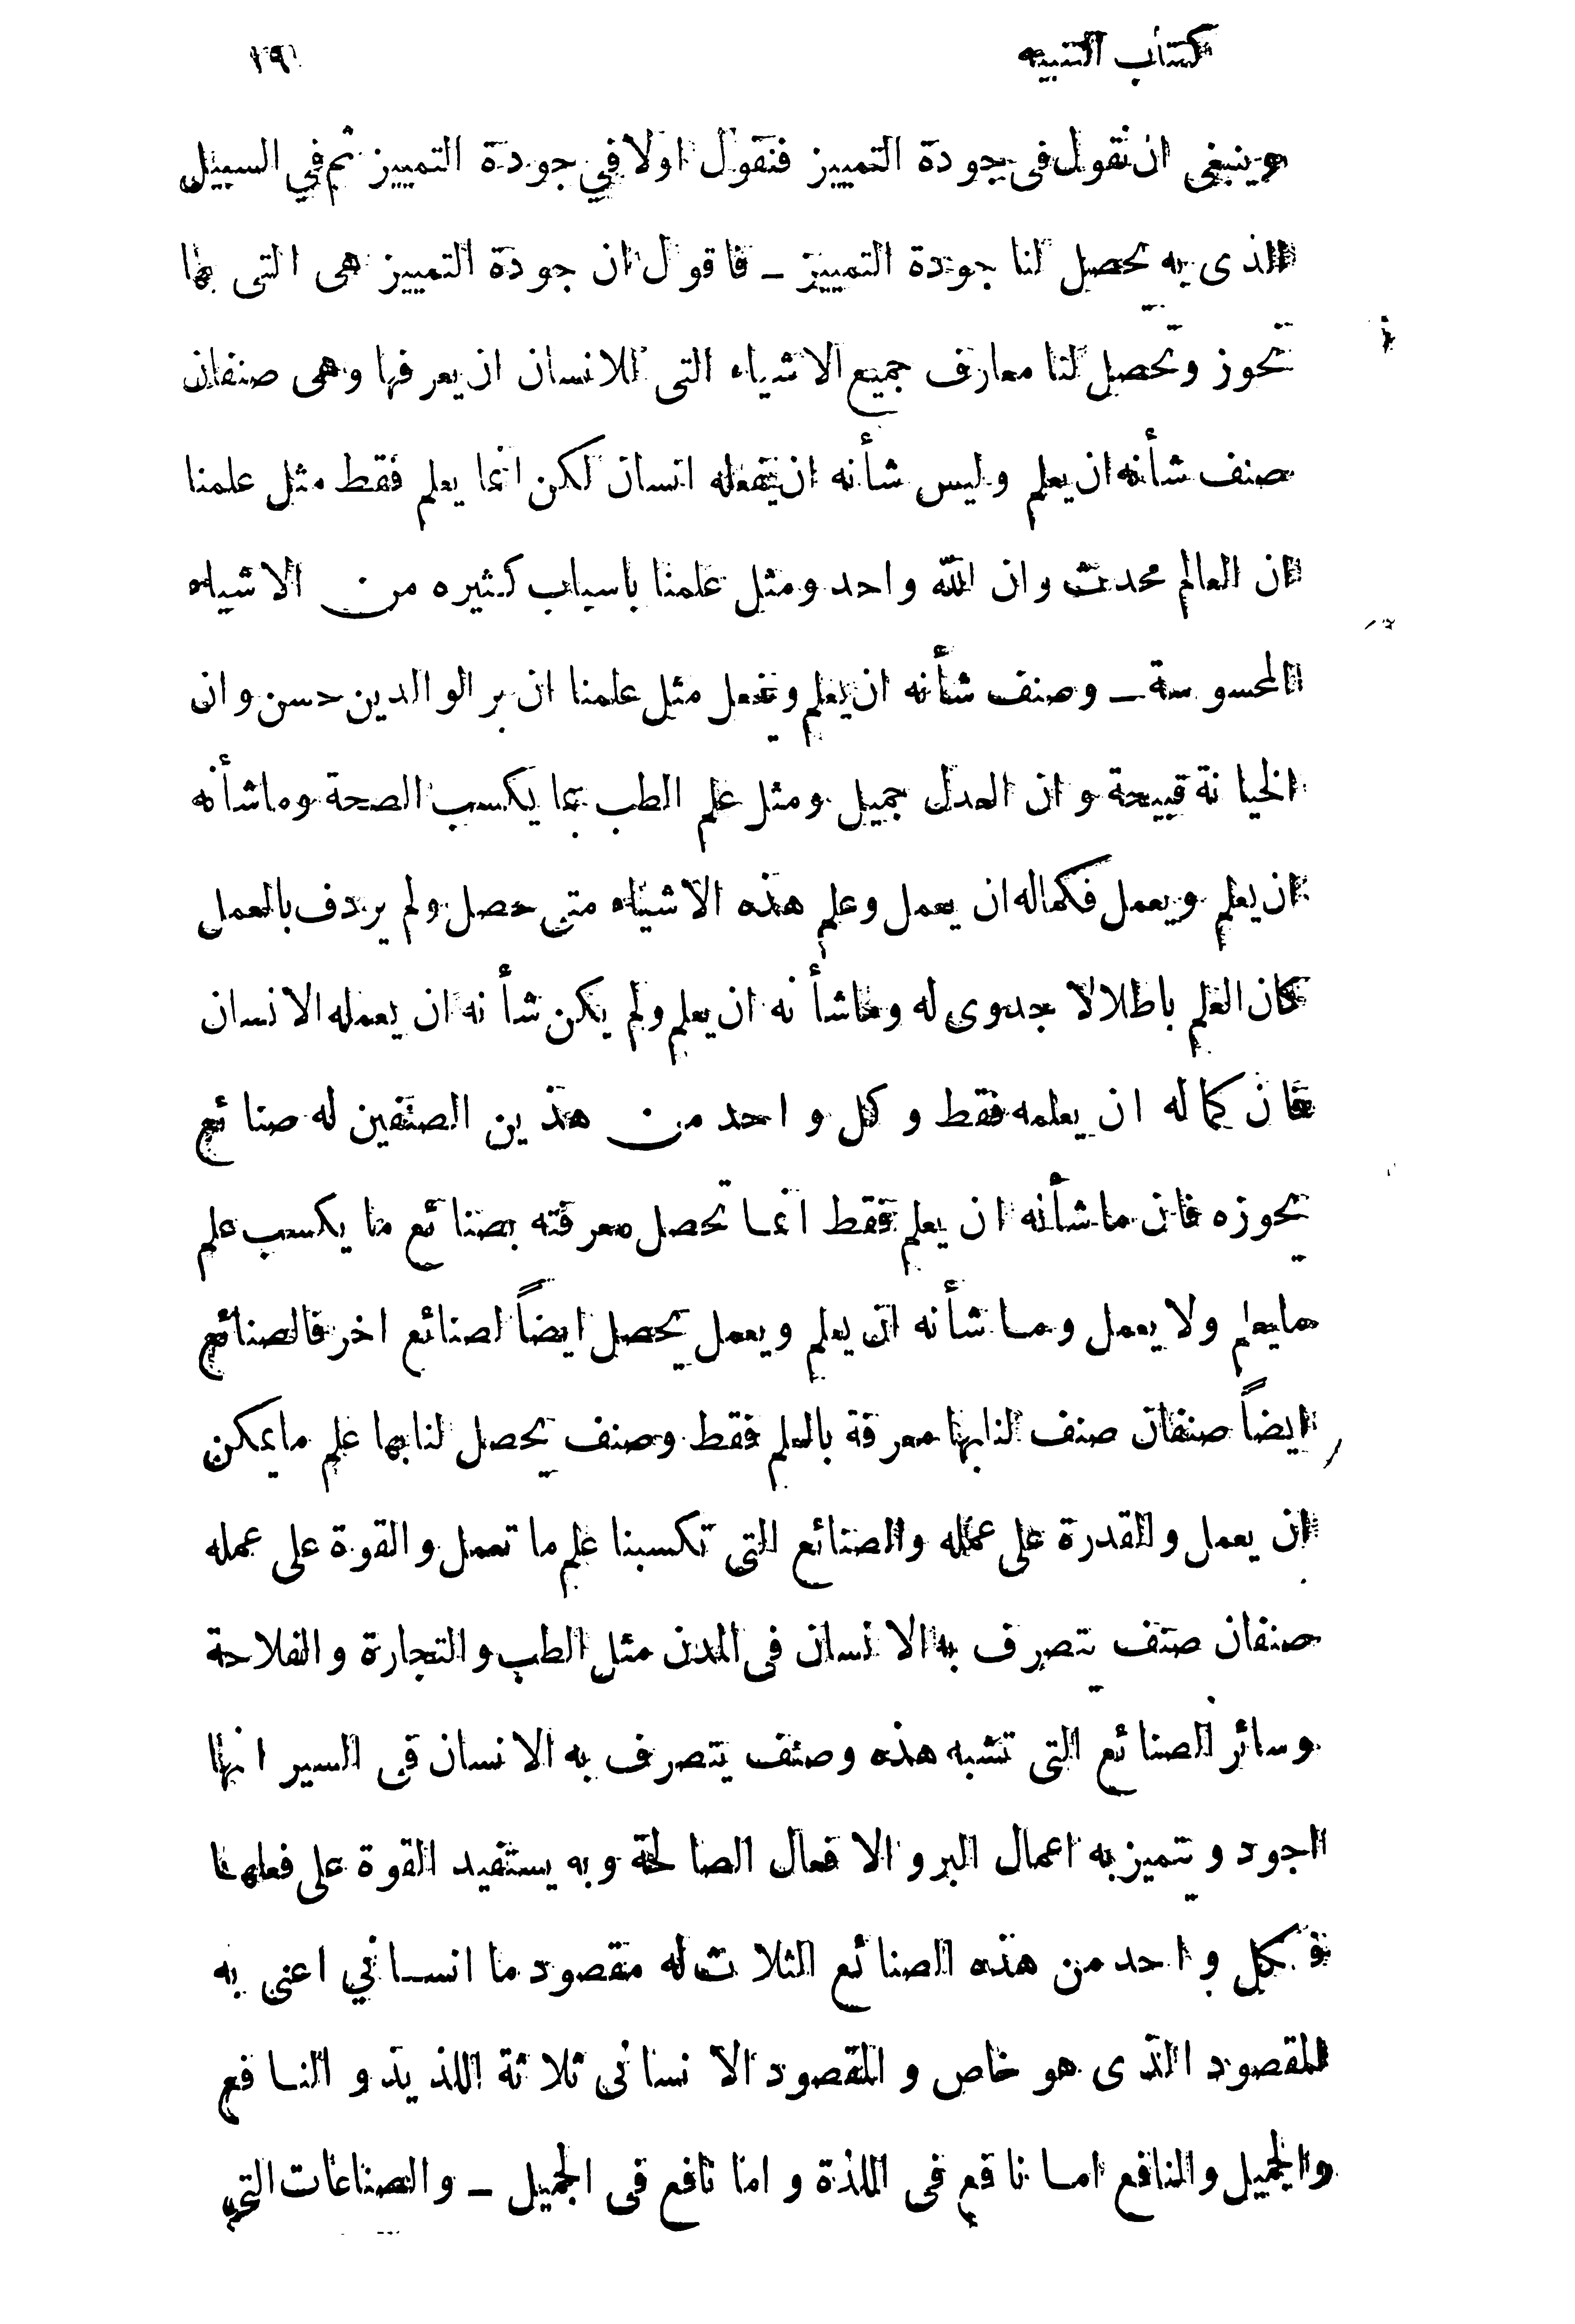 كتاب التنبيه ١٩
وينبغى ان نقول فى جودة التمييز فنقول اولا في جودة التمييز ثم في السبيل
الذى به يحصل لنا جودة التمييز ــ فاقول ان جودة التمييز هى التى بها
تحوز وتحصل لنا معارف جميع الاشياء التى للانسان ان يعرفها وهى صنفان
صنف شأنه ان يعلم وليس شأنه ان يفعله انسان لكن انما يعلم فقط مثل علمنا
ان العالم محدث وان الله واحد ومثل علمنا باسباب كثيره من الاشياء
المحسوسة ــ وصنف شأنه ان يعلم ويفعل مثل علمنا ان بر الوالدين حسن وان
الخيانة قبيحة وان العدل جميل ومثل علم الطب بما يكسب الصحة وماشأنه
ان يعلم ويعمل فكماله ان يعمل وعلم هذه الاشياء متى حصل ولم يردف بالعمل
كان العلم باطلالا جدوى له وماشأنه ان يعلم ولم يكن شأنه ان يعمله الانسان
فان كماله ان يعلمه فقط وكل واحد من هذين الصنفين له صنائع
تحوزه فان ماشأنه ان يعلم فقط انما تحصل معرفته بصنائع ما يكسب علم
مايعلم ولا يعمل وما شأنه ان يعلم ويعمل يحصل ايضاً لصنائع اخر فالصنائع
ايضاً صنفان صنف لنابها معرفة بالعلم فقط وصنف يحصل لنابها علم مايمكن
ان يعمل والقدرة على عمله والصنائع التى تكسبنا علم ما تعمل والقوة على عمله
صنفان صنف يتصرف به الانسان فى المدن مثل الطب والتجارة والفلاحة
وسائر الصنائع التى تشبه هذه وصنف يتصرف به الانسان فى السير انها
اجود ويتميز به اعمال البر والافعال الصالحة وبه يستفيد القوة على فعلها
فكل واحد من هذه الصنائع الثلاث له مقصود ما انسانى اعنى به
المقصود الذى هو خاص والمقصود الانسانى ثلاثة اللذيذ والنافع
والجميل والنافع اما نافع فى اللذة واما نافع فى الجميل ــ والصناعات التى